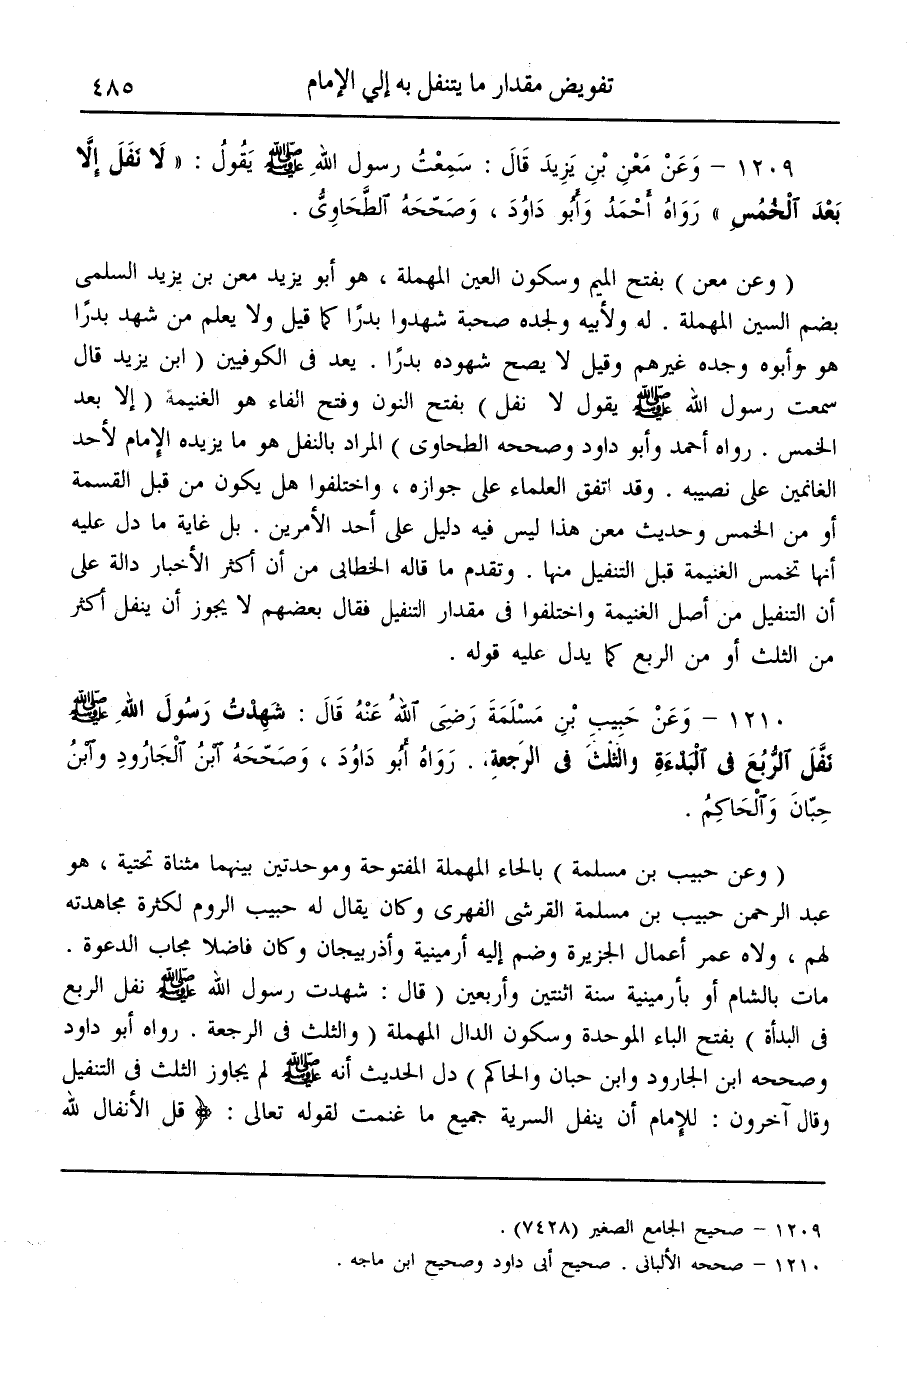 تفويض مقدار ما يتنفل به إلي الإمام ٤٨٥
١٢٠٩ - وَعَنْ مَعْنِ بْنِ يَزِيدَ قَالَ : سَمِعْتُ رسول اللهِ ﷺ يَقُولُ : « لَا نَفَلَ إِلَّا
بَعْدَ ٱلْخُمُسِ » رَوَاهُ أَحْمَدُ وَأَبُو دَاوُدَ ، وَصَحَّحَهُ ٱلطَّحَاوِىُّ .
( وعن معن ) بفتح الميم وسكون العين المهملة ، هو أبو يزيد معن بن يزيد السلمى
بضم السين المهملة . له ولأبيه ولجده صحبة شهدوا بدرًا كما قيل ولا يعلم من شهد بدرًا
هو وأبوه وجده غيرهم وقيل لا يصح شهوده بدرًا . يعد فى الكوفيين ( ابن يزيد قال
سمعت رسول الله ﷺ يقول لا نفل ) بفتح النون وفتح الفاء هو الغنيمة ( إلا بعد
الخمس . رواه أحمد وأبو داود وصححه الطحاوى ) المراد بالنفل هو ما يزيده الإمام لأحد
الغانمين على نصيبه . وقد اتفق العلماء على جوازه ، واختلفوا هل يكون من قبل القسمة
أو من الخمس وحديث معن هذا ليس فيه دليل على أحد الأمرين . بل غاية ما دل عليه
أنها تخمس الغنيمة قبل التنفيل منها . وتقدم ما قاله الخطابى من أن أكثر الأخبار دالة على
أن التنفيل من أصل الغنيمة واختلفوا فى مقدار التنفيل فقال بعضهم لا يجوز أن ينفل أكثر
من الثلث أو من الربع كما يدل عليه قوله .
١٢١٠ - وَعَنْ حَبِيبِ بْنِ مَسْلَمَةَ رَضِىَ ٱللهُ عَنْهُ قَالَ : شَهِدْتُ رَسُولَ اللهِ ﷺ
نَفَّلَ ٱلرُّبُعَ فى ٱلْبَدْءَةِ والثُلثَ فى الرَجعةِ، . رَوَاهُ أَبُو دَاوُدَ ، وَصَحَّحَهُ ٱبْنُ ٱلْجَارُودِ وٱبْنُ
حِبّانَ وَٱلْحَاكِمُ .
( وعن حبيب بن مسلمة ) بالحاء المهملة المفتوحة وموحدتين بينهما مثناة تحتية ، هو
عبد الرحمن حبيب بن مسلمة القرشى الفهرى وكان يقال له حبيب الروم لكثرة مجاهدته
لهم ، ولاه عمر أعمال الجزيرة وضم إليه أرمينية وأذربيجان وكان فاضلا مجاب الدعوة .
مات بالشام أو بأرمينية سنة اثنتين وأربعين ( قال : شهدت رسول الله ﷺ نفل الربع
فى البدأة ) بفتح الباء الموحدة وسكون الدال المهملة ( والثلث فى الرجعة . رواه أبو داود
وصححه ابن الجارود وابن حبان والحاكم ) دل الحديث أنه ﷺ لم يجاوز الثلث فى التنفيل
وقال آخرون : للإمام أن ينفل السرية جميع ما غنمت لقوله تعالى : ﴿ قل الأنفال لله
١٢٠٩ - صحيح الجامع الصغير (٧٤٢٨) .
١٢١٠ - صححه الألبانى . صحيح أبى داود وصحيح ابن ماجه .